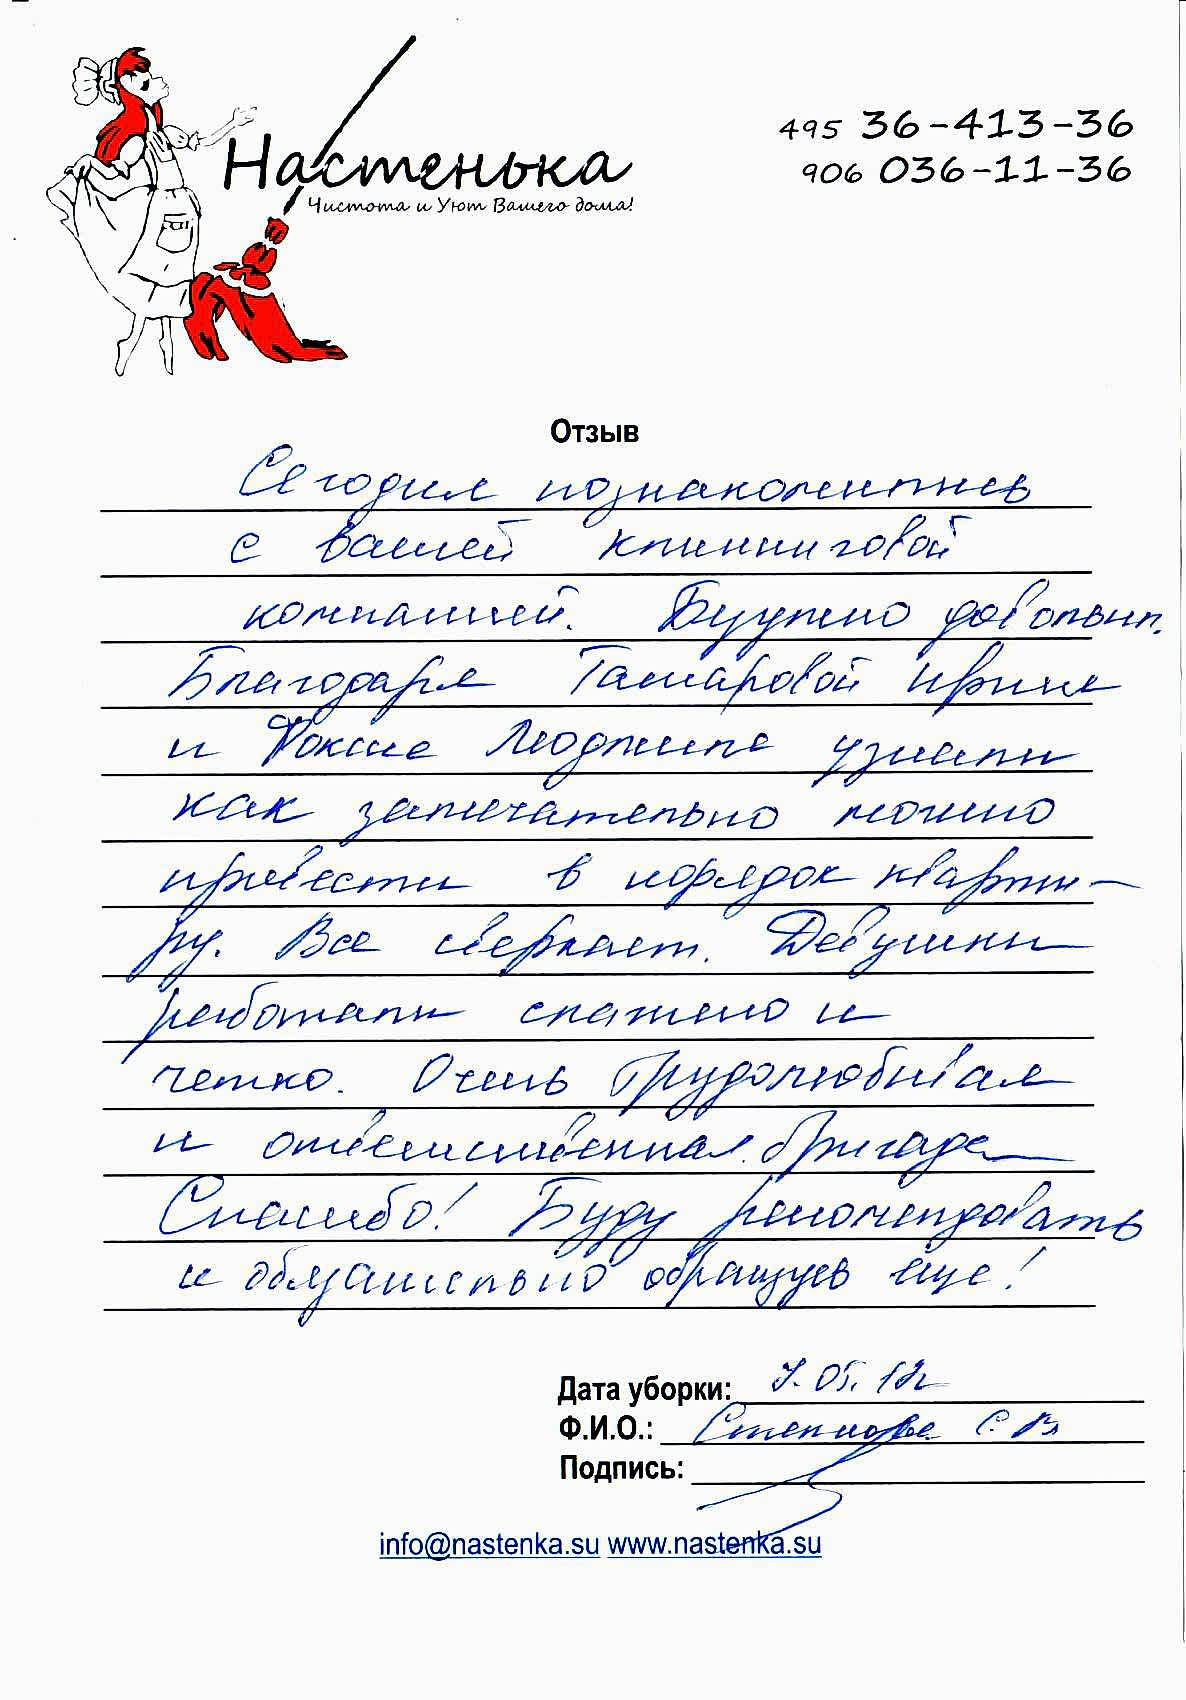 495 36-413-36
906 036-11-36
Настенька
Чистота и Уют Вашего дома!
Отзыв
Сегодня познакомились
с вашей клининговой
компанией. довольны.
Благодаря Ирине
и Людмиле узнали
как замечательно можно
привести в порядок кварти-
ру. Все сверкает. Девушки
работали слажено и
четко. Очень трудолюбивая
и ответственная бригада
Спасибо! Буду рекомендовать
и обязательно обращусь еще!
Дата уборки: 05. 12г
Ф.И.О.: С. В.
Подпись:
info@nastenka.su www.nastenka.su